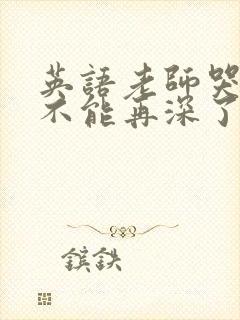 英語老師哭
不能再深了
鑌鉄